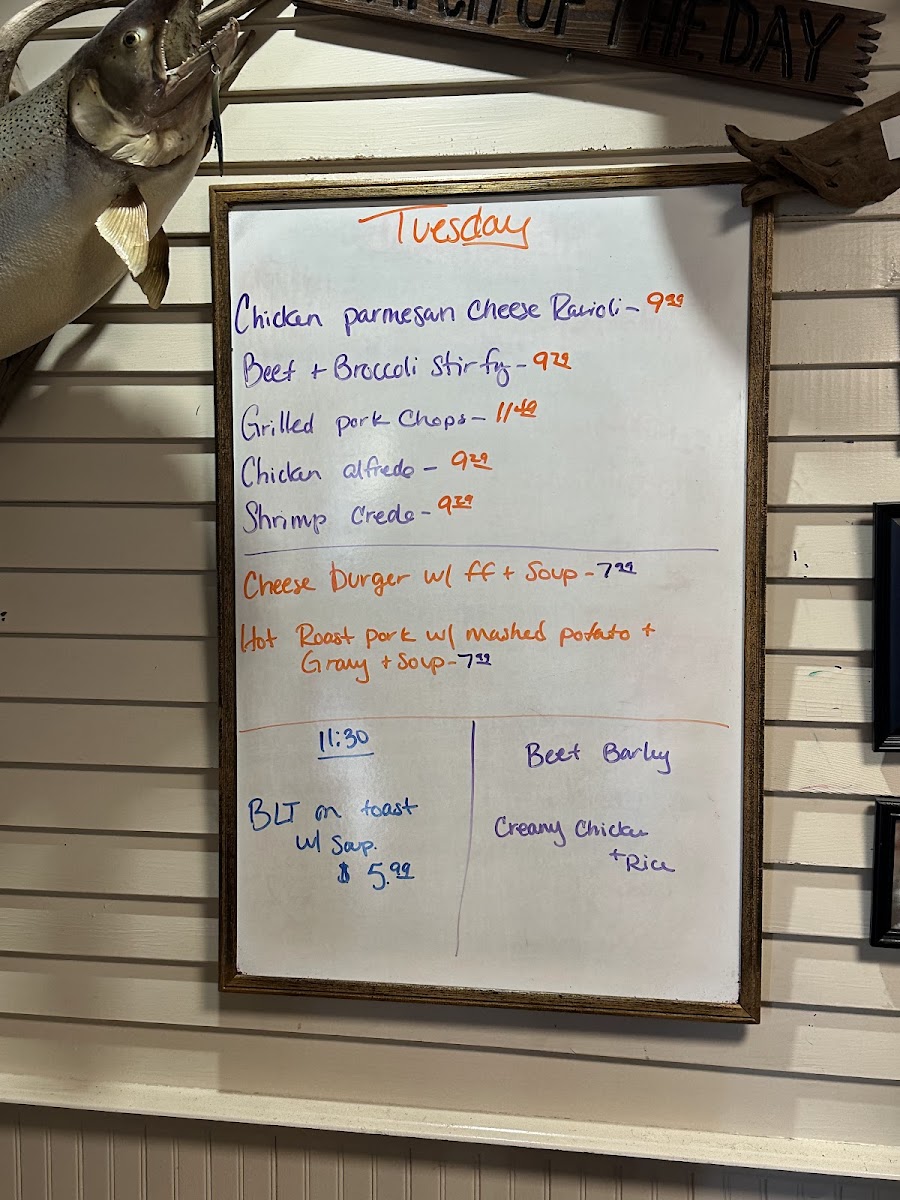 OF THE DAY
Tuesday
Chicken parmesan Cheese Ravioli - 9.99
Beef + Broccoli Stir fry - 9.79
Grilled pork Chops - 11.49
Chicken alfredo - 9.29
Shrimp Creole - 9.29
Cheese burger w/ ff + Soup - 7.99
Hot Roast pork w/ mashed potato +
Gravy + Soup - 7.99
11:30
BLT on toast
w/ Soup.
$ 5.99
Beef Barley
Creamy Chicken
+ Rice